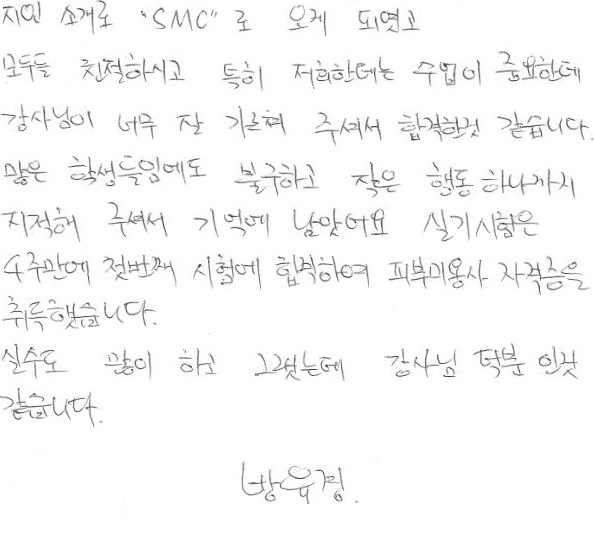 지인 소개로 "SMC"로 오게 되였고
모두들 친절하시고 특히 저희한테는 수업이 중요한데
강사님이 너무 잘 가르쳐 주셔서 합격한것 같습니다.
많은 학생들임에도 불구하고 작은 행동 하나까지
지적해 주셔서 기억에 남았어요 실기시험은
4주만에 첫번째 시험에 합격하여 피부미용사 자격증을
취득했습니다.
실수도 많이 하고 그랬는데 강사님 덕분 인것
같습니다.
방유경.